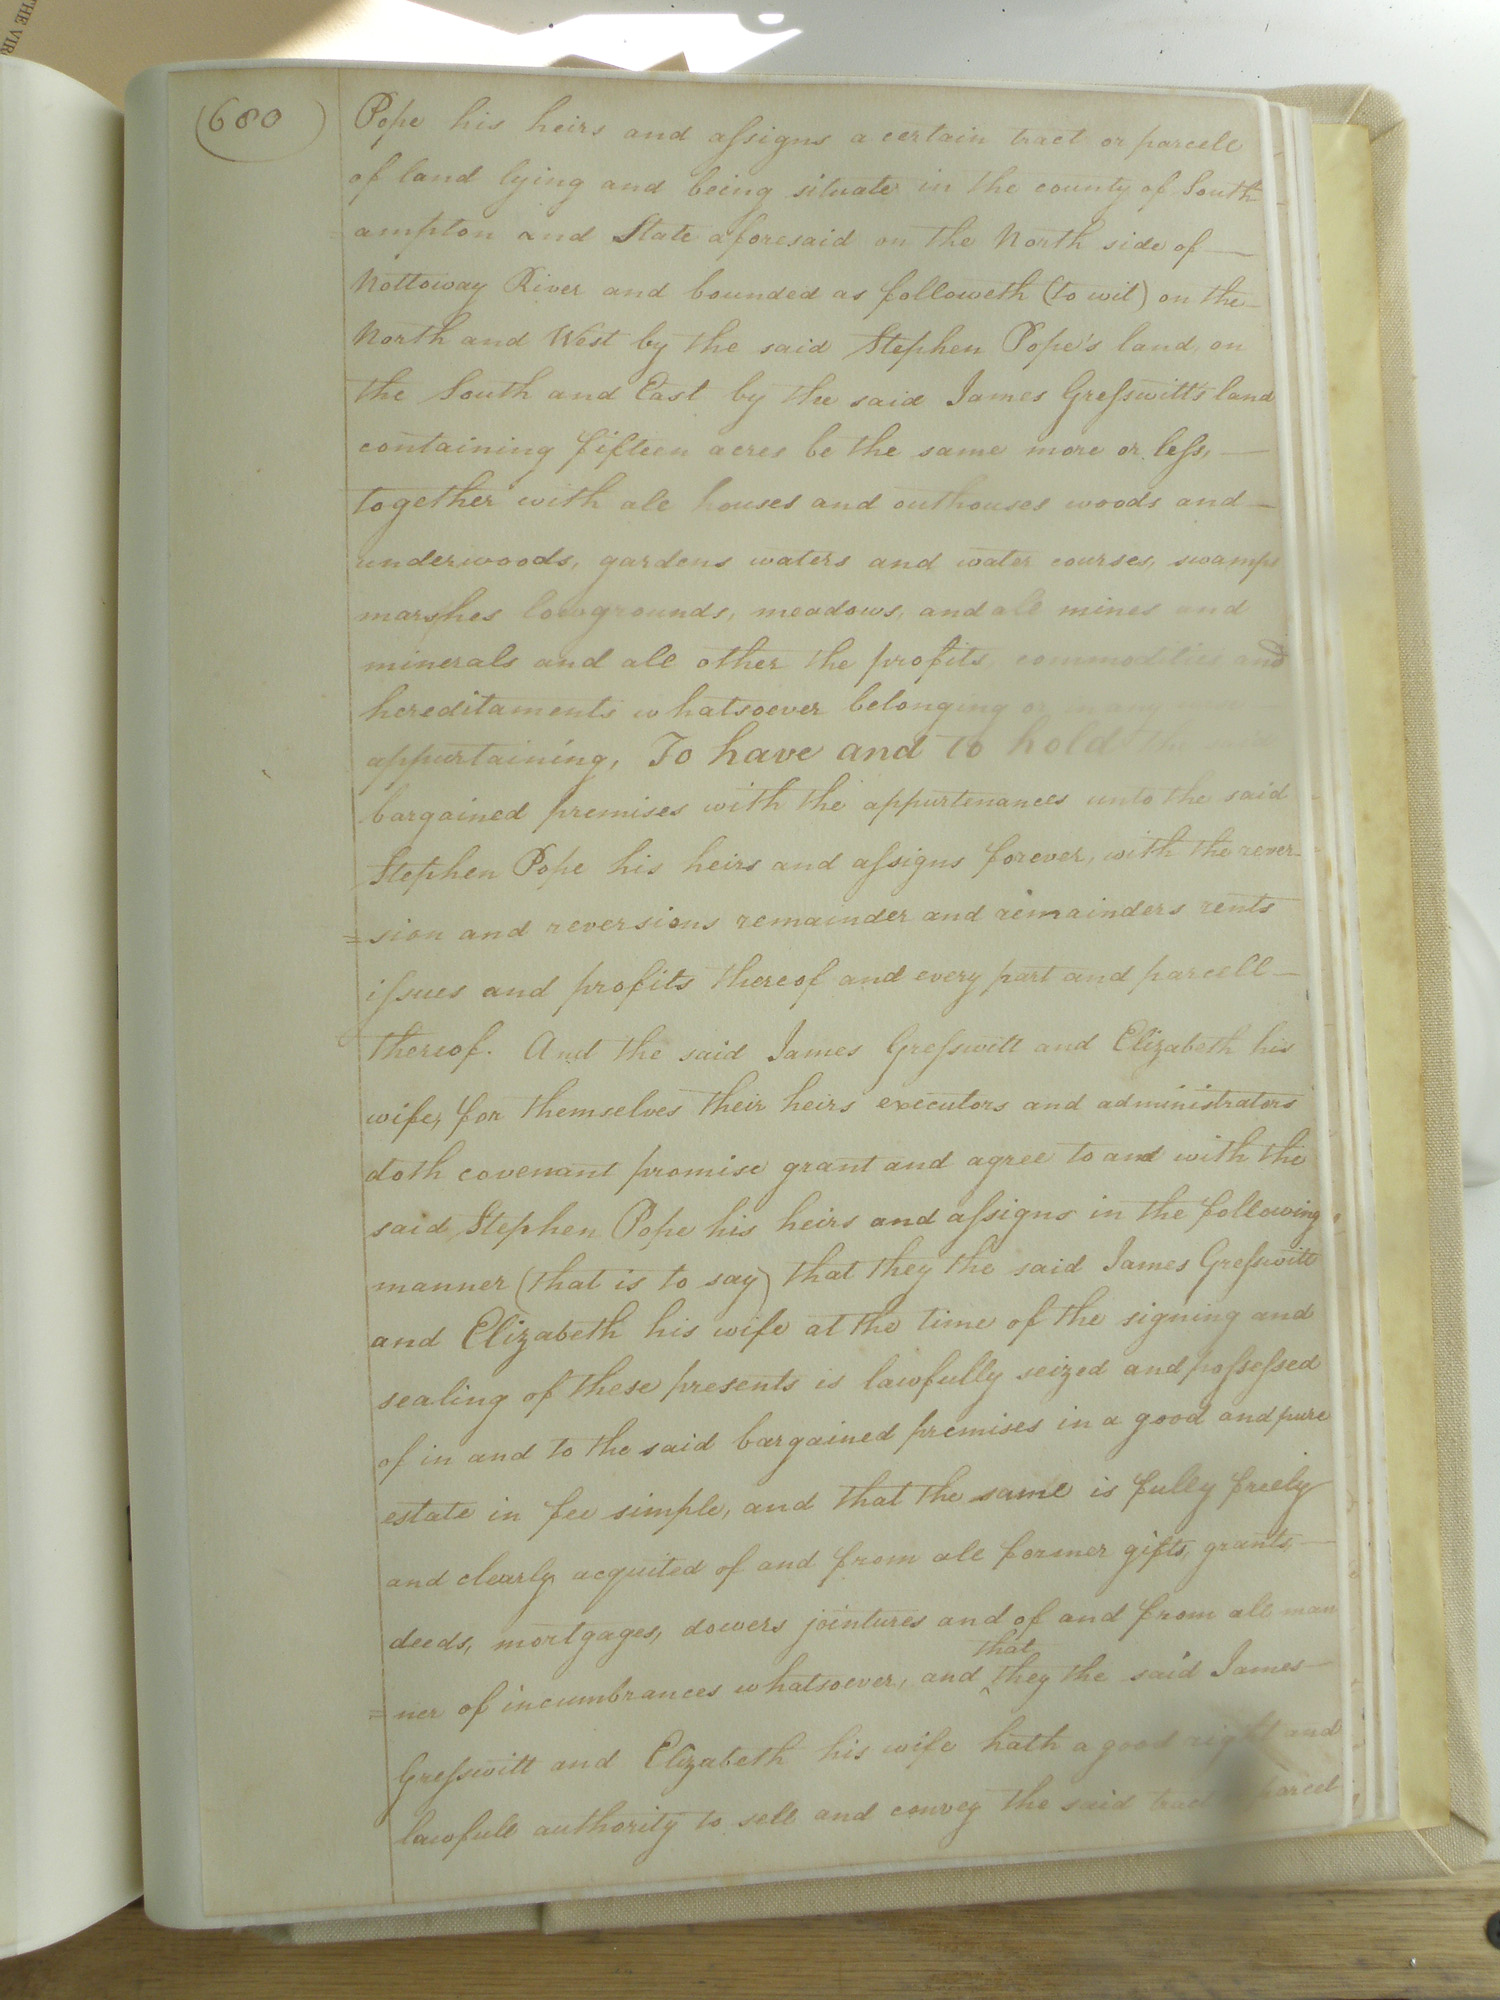 THE VIR
(680)
Pope his heirs and assigns a certain tract or parcell
of land lying and being situate in the county of South
=ampton and State aforesaid on the North side of —
Nottoway River and bounded as followeth (to wit) on the —
North and West by the said Stephen Pope's land, on
the South and East by the said James Gresswitt's land
containing fifteen acres be the same more or less, —
together with all houses and outhouses woods and —
underwoods, gardens waters and water courses, swamps
marshes lowgrounds, meadows, and all mines and
minerals and all other the profits commodities and
hereditaments whatsoever belonging or in any
appurtaining, To have and to hold the
bargained premises with the appurtenances unto the said
Stephen Pope his heirs and assigns forever, with the rever-
=sion and reversions remainder and remainders rents
issues and profits thereof and every part and parcell —
thereof. And the said James Gresswitt and Elizabeth his
wife, for themselves their heirs executors and administrators
doth covenant promise grant and agree to and with the
said Stephen Pope his heirs and assigns in the following
manner (that is to say) that they the said James Gresswitt
and Elizabeth his wife at the time of the signing and
sealing of these presents is lawfully seized and possessed
of in and to the said bargained premises in a good and pure
estate in fee simple, and that the same is fully freely
and clearly acquited of and from all former gifts, grants, —
deeds, mortgages, dowers jointures and of and from all man
=ner of incumbrances whatsoever, and that they the said James —
Gresswitt and Elizabeth his wife hath a good right and
lawfull authority to sell and convey the said tract parcel